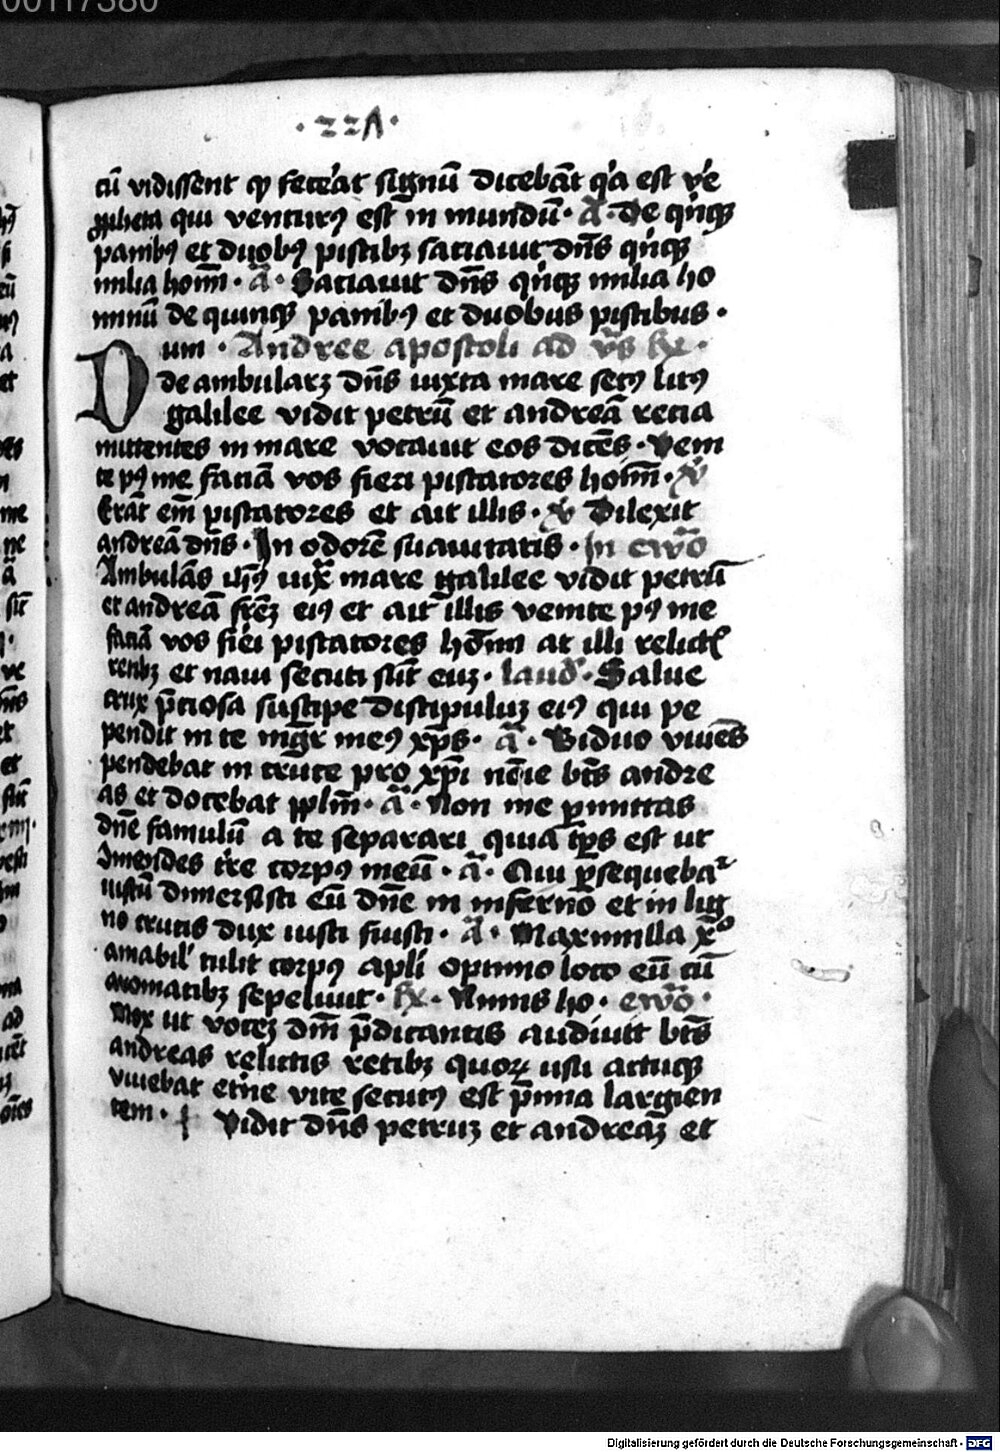 00117380
·22Λ·
cū vidissent ꝙ fecerat signū dicebāt q'a est v'e
ꝓpheta qui venturꝰ est in mundū · a᷃ · De qⁱnqꝫ
panibꝰ et duobꝰ piscibꝫ saciauit dn̄s qⁱnqꝫ
milia hoīm · a᷃ · Saciauit dn̄s qⁱnqꝫ milia ho
minū de quinqꝫ panibꝰ et duobus piscibus ·
um · Andree apostoli ad v̄s
Dde ambularꝫ dn̄s iuxta mare secꝰ litꝰ
galilee vidit petrū et andreā recia
mittentes in mare vocauit eos dicēs · Veni
te pꝰ me faciā vos fieri piscatores hoīm · v̄
Erāt em̄ piscatores et ait illis · v̄ Dilexit
andreā dn̄s · In odorē suauitatis · In ewō
Ambulās iux̄ mare galilee vidit petrū
et andreā fr̄eꝫ eiꝰ et ait illis venite pꝰ me
faciā vos fieī piscatores hōīm at illi relict'
retibꝫ et naui secuti sūt euꝫ · laud' · Salue
crux p̄ciosa suscipe discipuluꝫ eiꝰ qui pe
pendit in te mḡr meꝰ xp̄s · a᷃ · Biduo viuēs
pendebat in cruce pro xp̄i nōīe bt̄s andre
as et docebat pplm̄ · a᷃ · Non me ꝑmittas
dn̄e famulū a te separari quia tp̄s est ut
cōmendes t're corpꝰ meū · a᷃ · Qui ꝑsequebaᵗ
iustū dimersisti eū dn̄e in infernō et in lig
no crucis dux iusti fuisti · a᷃ · Maximilla x̄o
amabil' tulit corpꝰ apli optimo loco eū cū
aromatibꝫ sepeliuit · Nimis ho · ewō ·
Mox ut voceꝫ dm̄ p̄dicantis audiuit bt̄s
andreas relictis retibꝫ quoꝝ usu actuqꝫ
viuebat et'ne vite secutꝰ est p̄mia largien
tem · Vidit dn̄s petruꝫ et andreaꝫ et
Digitalisierung gefördert durch die Deutsche Forschungsgemeinschaft - DFG